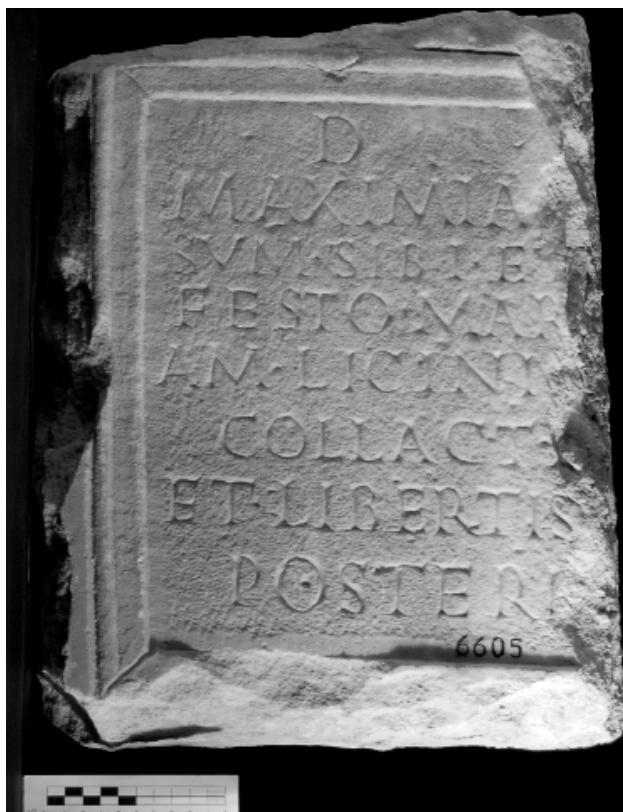 D
MAXIMIA
SVM·SIBI·E
FESTO·VAR
AM·LICINI
COLLACT
ET·LIBERTIS
POSTERI
6605